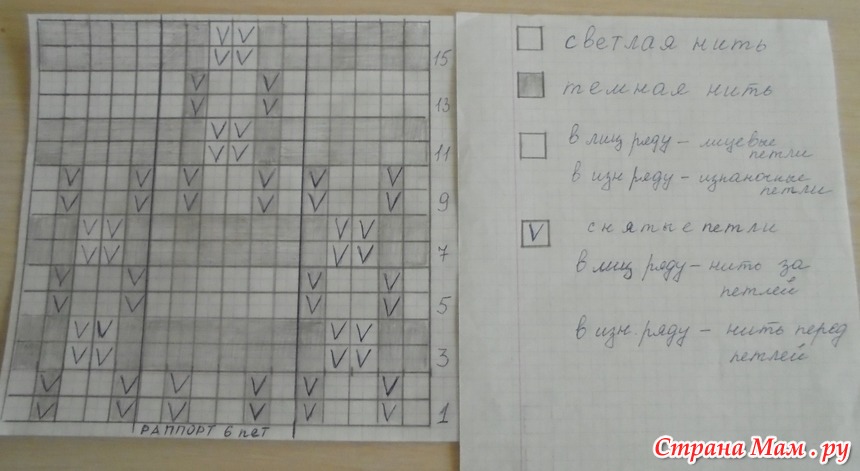 15
13
11
9
7
5
3
1
РАППОРТ 6 пет
светлая нить
темная нить
в лиц ряду - лицевые
петли
в изн ряду - изнаночные
петли
V снятые петли
в лиц ряду - нить за
петлей
в изн. ряду - нить перед
петлей
Страна Мам.ру